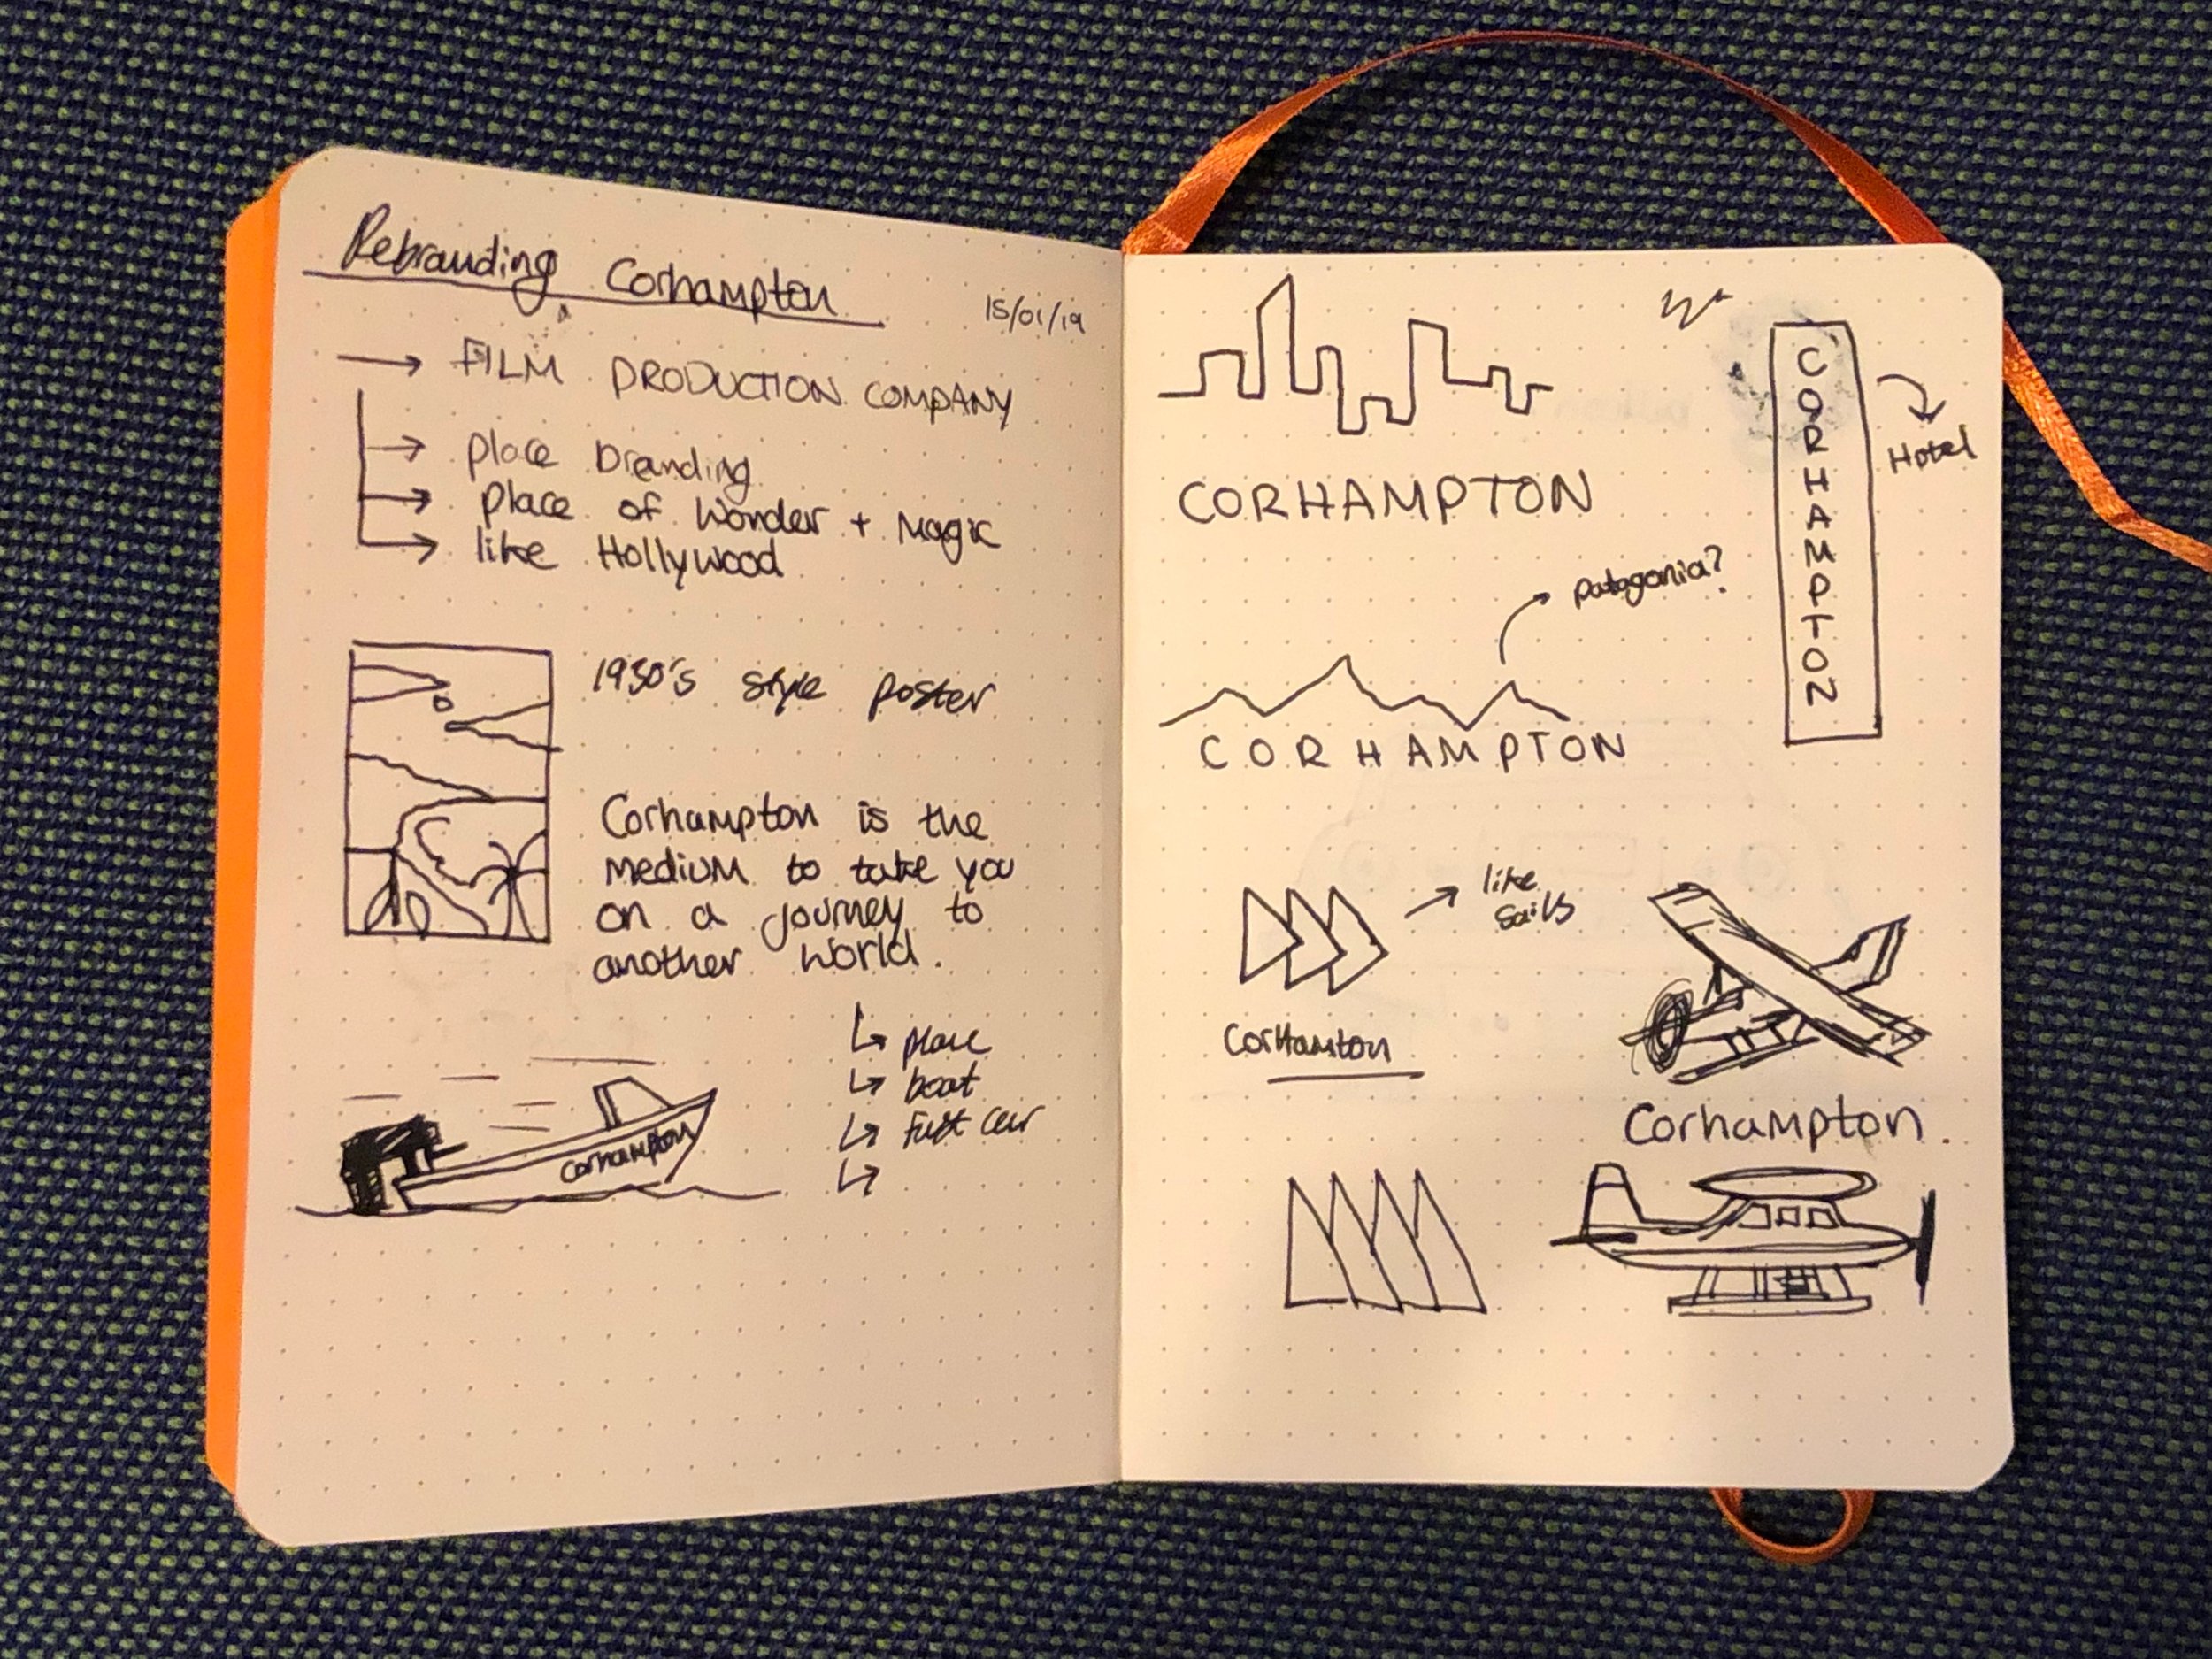 Rebranding Corhampton
15/01/19
→ FILM PRODUCTION COMPANY
→ place branding
→ place of Wonder + Magic
→ like Hollywood
1930's style poster
Corhampton is the
medium to take you
on a journey to
another world.
↳ plane
↳ boat
↳ fast car
↳
Corhampton
CORHAMPTON
Hotel
CORHAMPTON
patagonia?
CORHAMPTON
like
sails
CorHamton
Corhampton